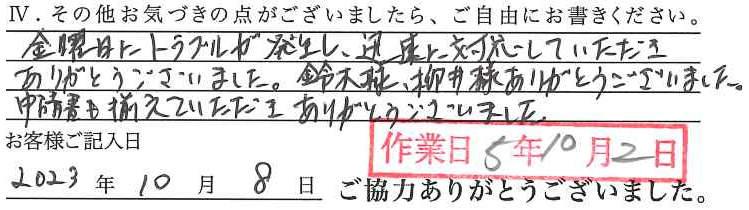 Ⅳ．その他お気づきの点がございましたら、ご自由にお書きください。
金曜日にトラブルが発生し、迅速に対応していただき
ありがとうございました。鈴木様、柳井様ありがとうございました。
申請書も揃えていただきありがとうございました
お客様ご記入日
作業日 5年10月2日
2023 年 10 月 8 日 ご協力ありがとうございました。